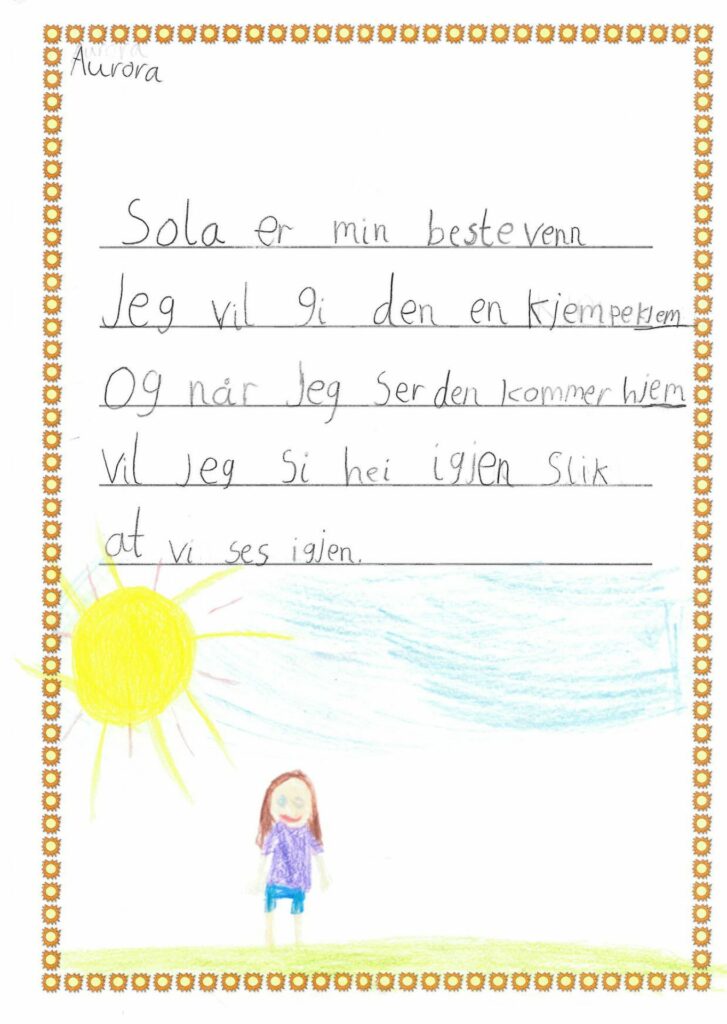 Aurora
Sola er min bestevenn
Jeg vil gi den en kjempeklem
Og når Jeg ser den kommer hjem
vil jeg si hei igjen slik
at vi ses igjen.